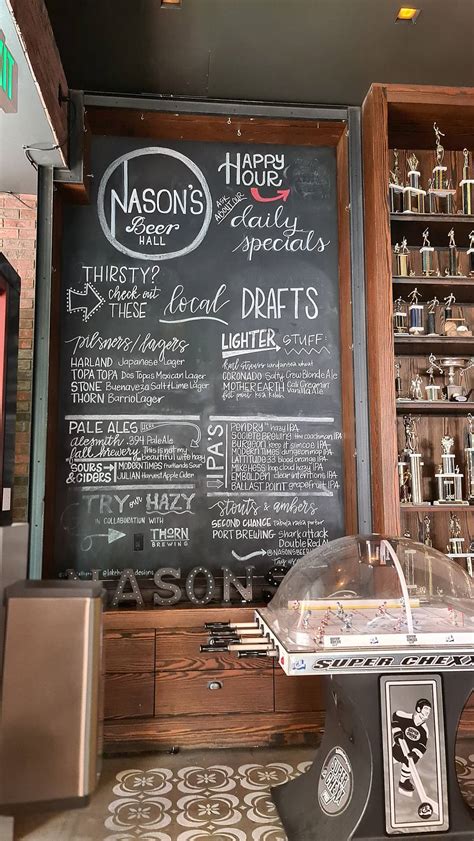 EXIT
NASON'S
Beer
HALL
HAPPY
HOUR
ASK
ABOUT OUR
daily
specials
THIRSTY?
check out
THESE
local DRAFTS
pilsners/lagers
HARLAND Japanese Lager
TOPA TOPA Dos Topas Mexican Lager
STONE Buenaveza Salt & Lime Lager
THORN Barrio Lager
LIGHTER STUFF:
CORONADO Salty Crew Blonde Ale
MOTHER EARTH Cali Creamin'
Vanilla Ale
PALE ALES
alesmith .394 Pale Ale
fall brewery This is not my
beautiful wife hazy
SOURS
& CIDERS
MODERN TIMES Fruitlands Sour
JULIAN Harvest Apple Cider
IPA'S
PENDRY hazy IPA
SOCIETE BREWING the coachman IPA
BURGEON keep it simcoe IPA
MODERN TIMES dungeon map IPA
LATITUDE 33 blood orange IPA
MIKE HESS hop cloud hazy IPA
EMBOLDEN clear intentions IPA
BALLAST POINT grapefruit IPA
TRY our HAZY
IN COLLABORATION WITH
THORN
BREWING
stouts & ambers
SECOND CHANCE Tabula Rasa Porter
PORT BREWING Shark Attack
Double Red Ale
NASON'S
SUPER CHEXX
SUPER
CHEXX